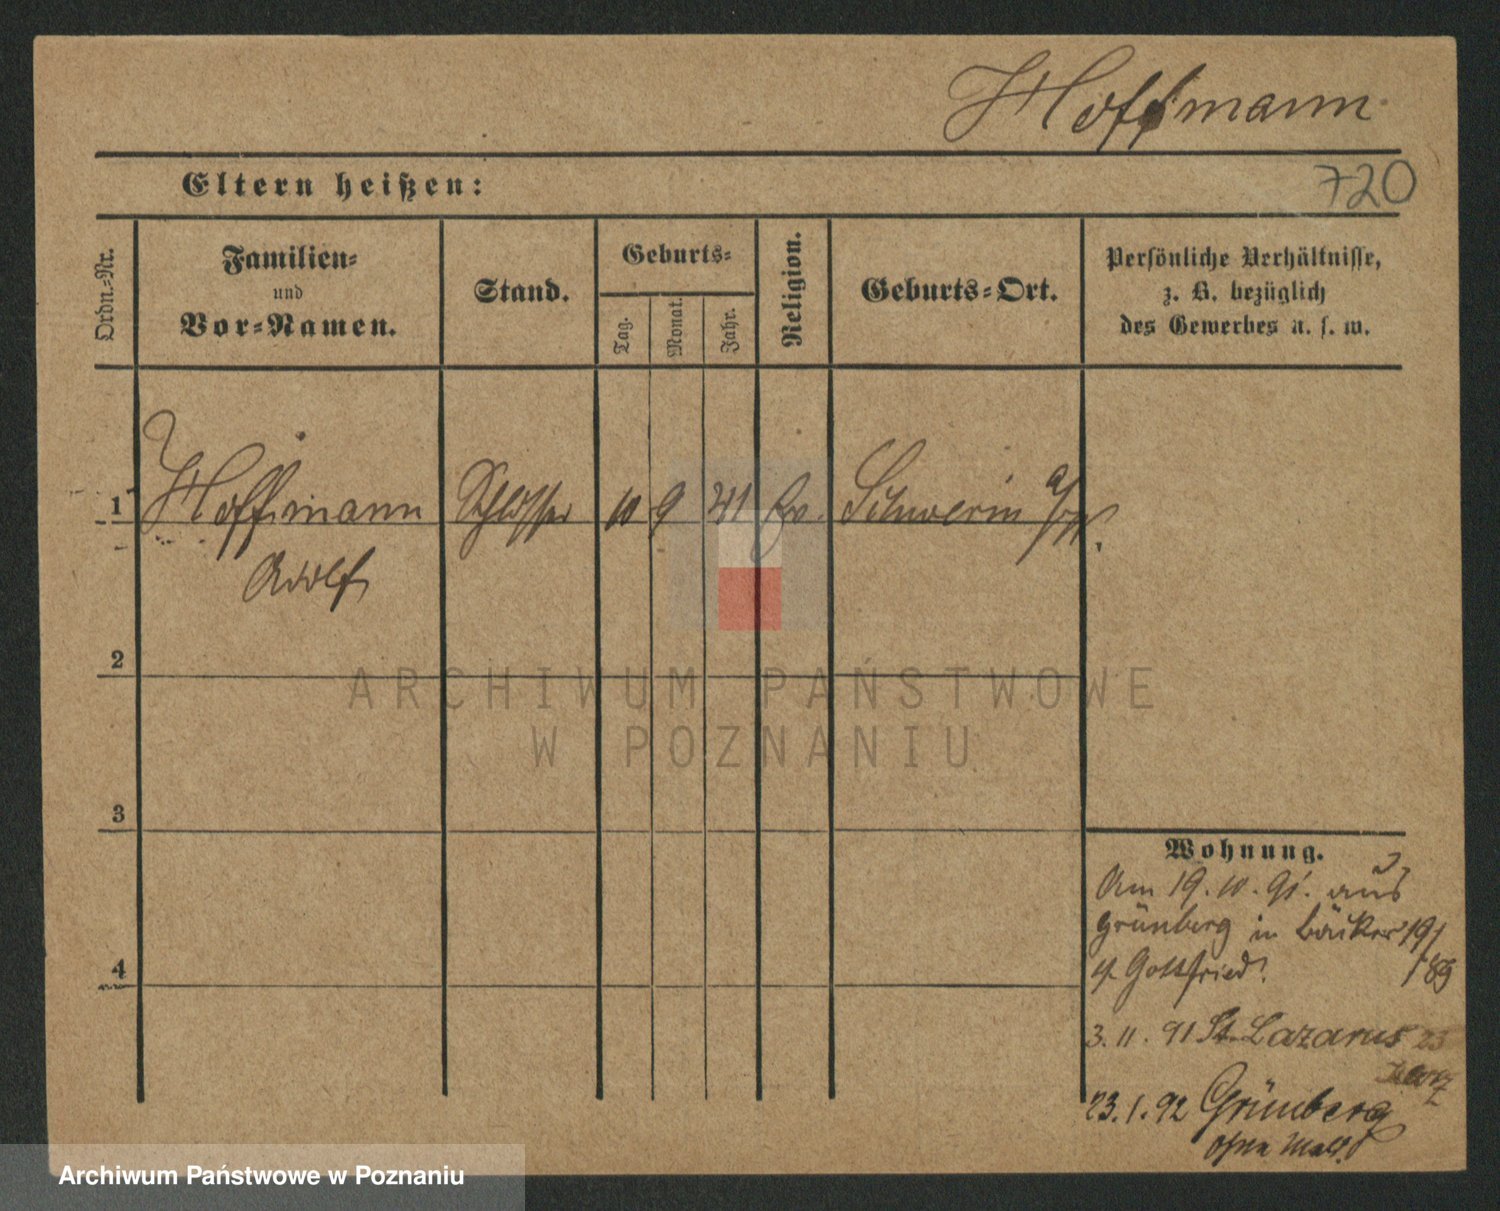 Hoffmann
Eltern heißen:
720
Ordn.-Nr.
Familien-
und
Vor-Namen.
Stand.
Geburts-
Tag.
Monat.
Jahr.
Religion.
Geburts-Ort.
Persönliche Verhältnisse,
z. B. bezüglich
des Gewerbes u. s. w.
1 Hoffmann Schlosser 10 9 41 Ev. Schwerin a/W.
Adolf
2
3
4
Wohnung.
Am 19.10.91. aus
Grünberg in Bäcker
Gottfried
3.11.91 St. Lazarus 23
23.1.92 Grünberg
ohne
ARCHIWUM PAŃSTWOWE
W POZNANIU
Archiwum Państwowe w Poznaniu